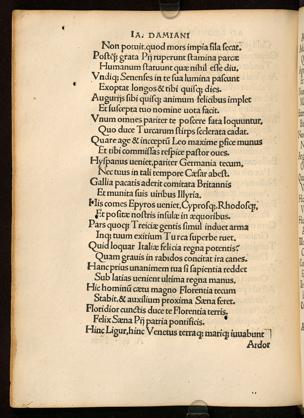 IA. DAMIANI
Non potuit, quod mors impia fila secat.
Postq̃ grata Pij ruperunt stamina parcæ
Humanum statuunt quæ nihil esse diu.
Vndiq; Senenses in te sua lumina pascunt
Exoptat longos & tibi quisq; dies.
Augurijs sibi quisq; animum felicibus implet
Et suscepta tuo nomine uota facit.
Vnum omnes pariter te poscere fata loquuntur,
Quo duce Turcarum stirps scelerata cadat.
Quare age & inceptũ Leo maxime pfice munus
Et tibi commissas respice pastor oues.
Hyspanus ueniet, pariter Germania tecum,
Nec tuus in tali tempore Cæsar abest.
Gallia pacatis aderit comitata Britannis
Et munita suis uiribus Illyria.
His comes Epyros ueniet, Cyprosq; Rhodosq;,
Et positæ nostris insulæ in æquoribus.
Pars quoq; Treiciæ gentis simul induet arma
Inq; tuum exitium Turca superbe ruet.
Quid loquar Italiæ felicia regna potentis?
Quam grauis in rabidos concitat ira canes.
Hanc prius unanimem tua si sapientia reddet
Sub latias uenient ultima regna manus.
Hic hominũ cætu magno Florentia tecum
Stabit. & auxilium proxima Sæna feret.
Floridior cunctis duce te Florentia terris.
Felix Sæna Pij patria pontificis.
Hinc Ligur, hinc Venetus terraq; mariq; iuuabunt
Ardor